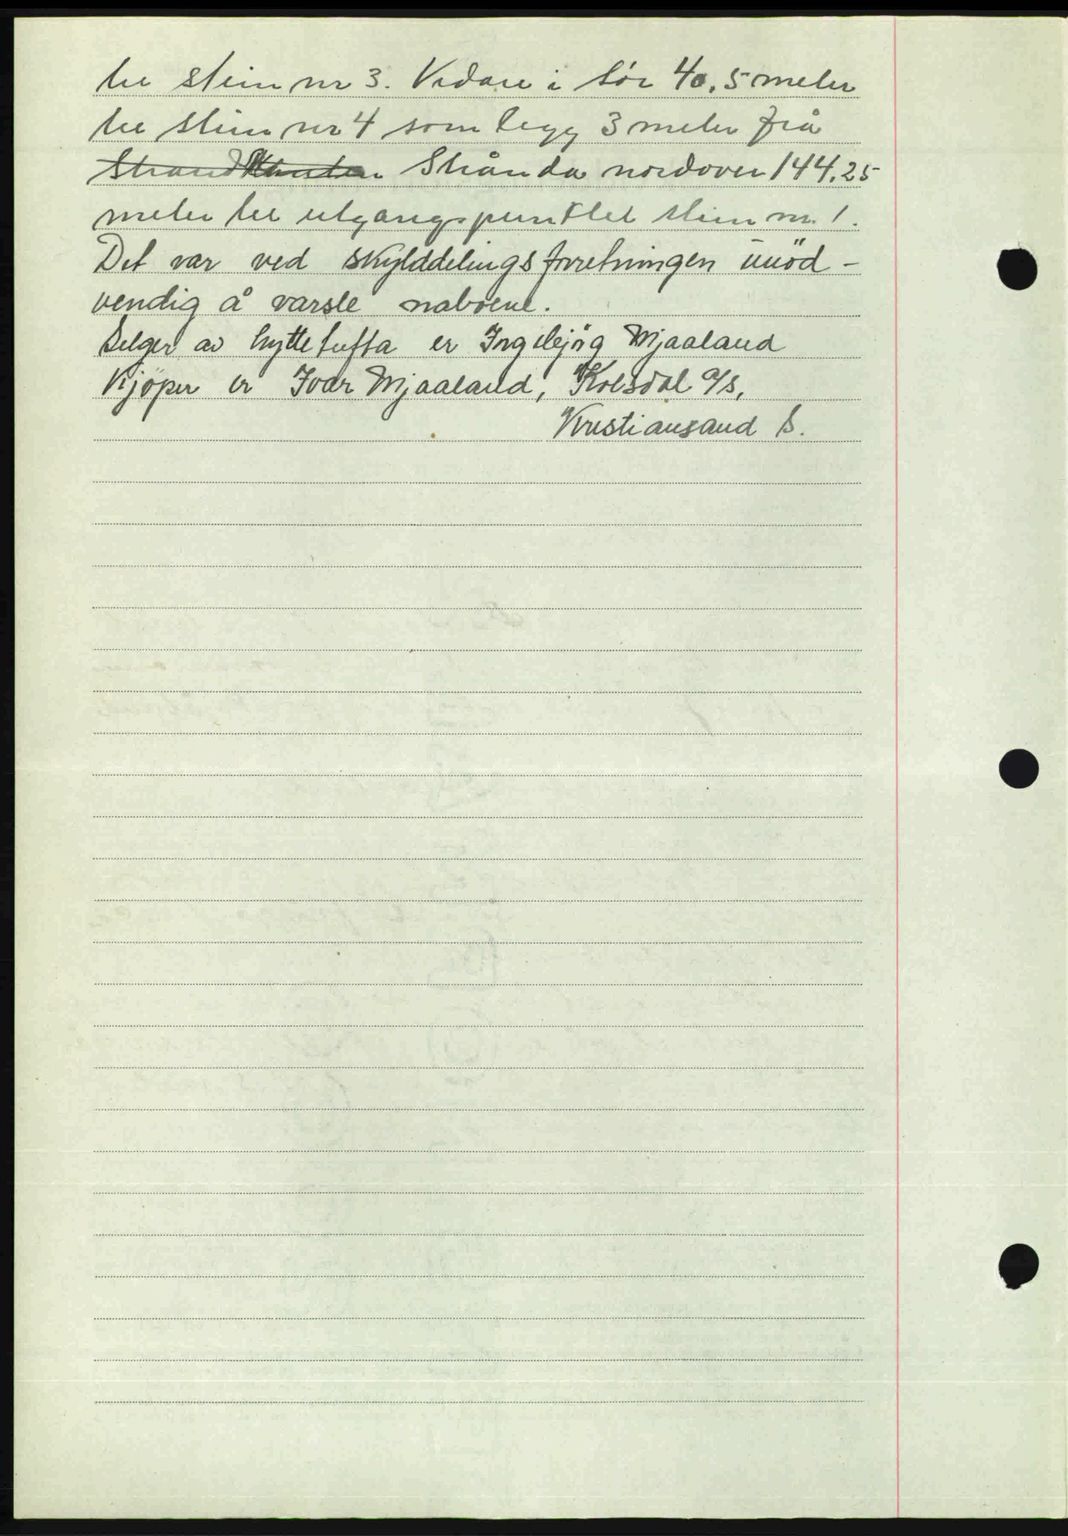 til stein nr 3. Vidare i sör 40,5 meter
til stein nr 4 som legg 3 meter frå
Strandkanten Strånda nordover 144.25
meter til utgangspunktet stein nr. 1.
Det var ved skylddelingsforretningen unöd-
vendig å varsle naboene.
Selger av hyttetufta er Ingebjörg Mjaaland
Kjöper er Ivar Mjaaland, Kolsdal a/s,
Kristiansand S.